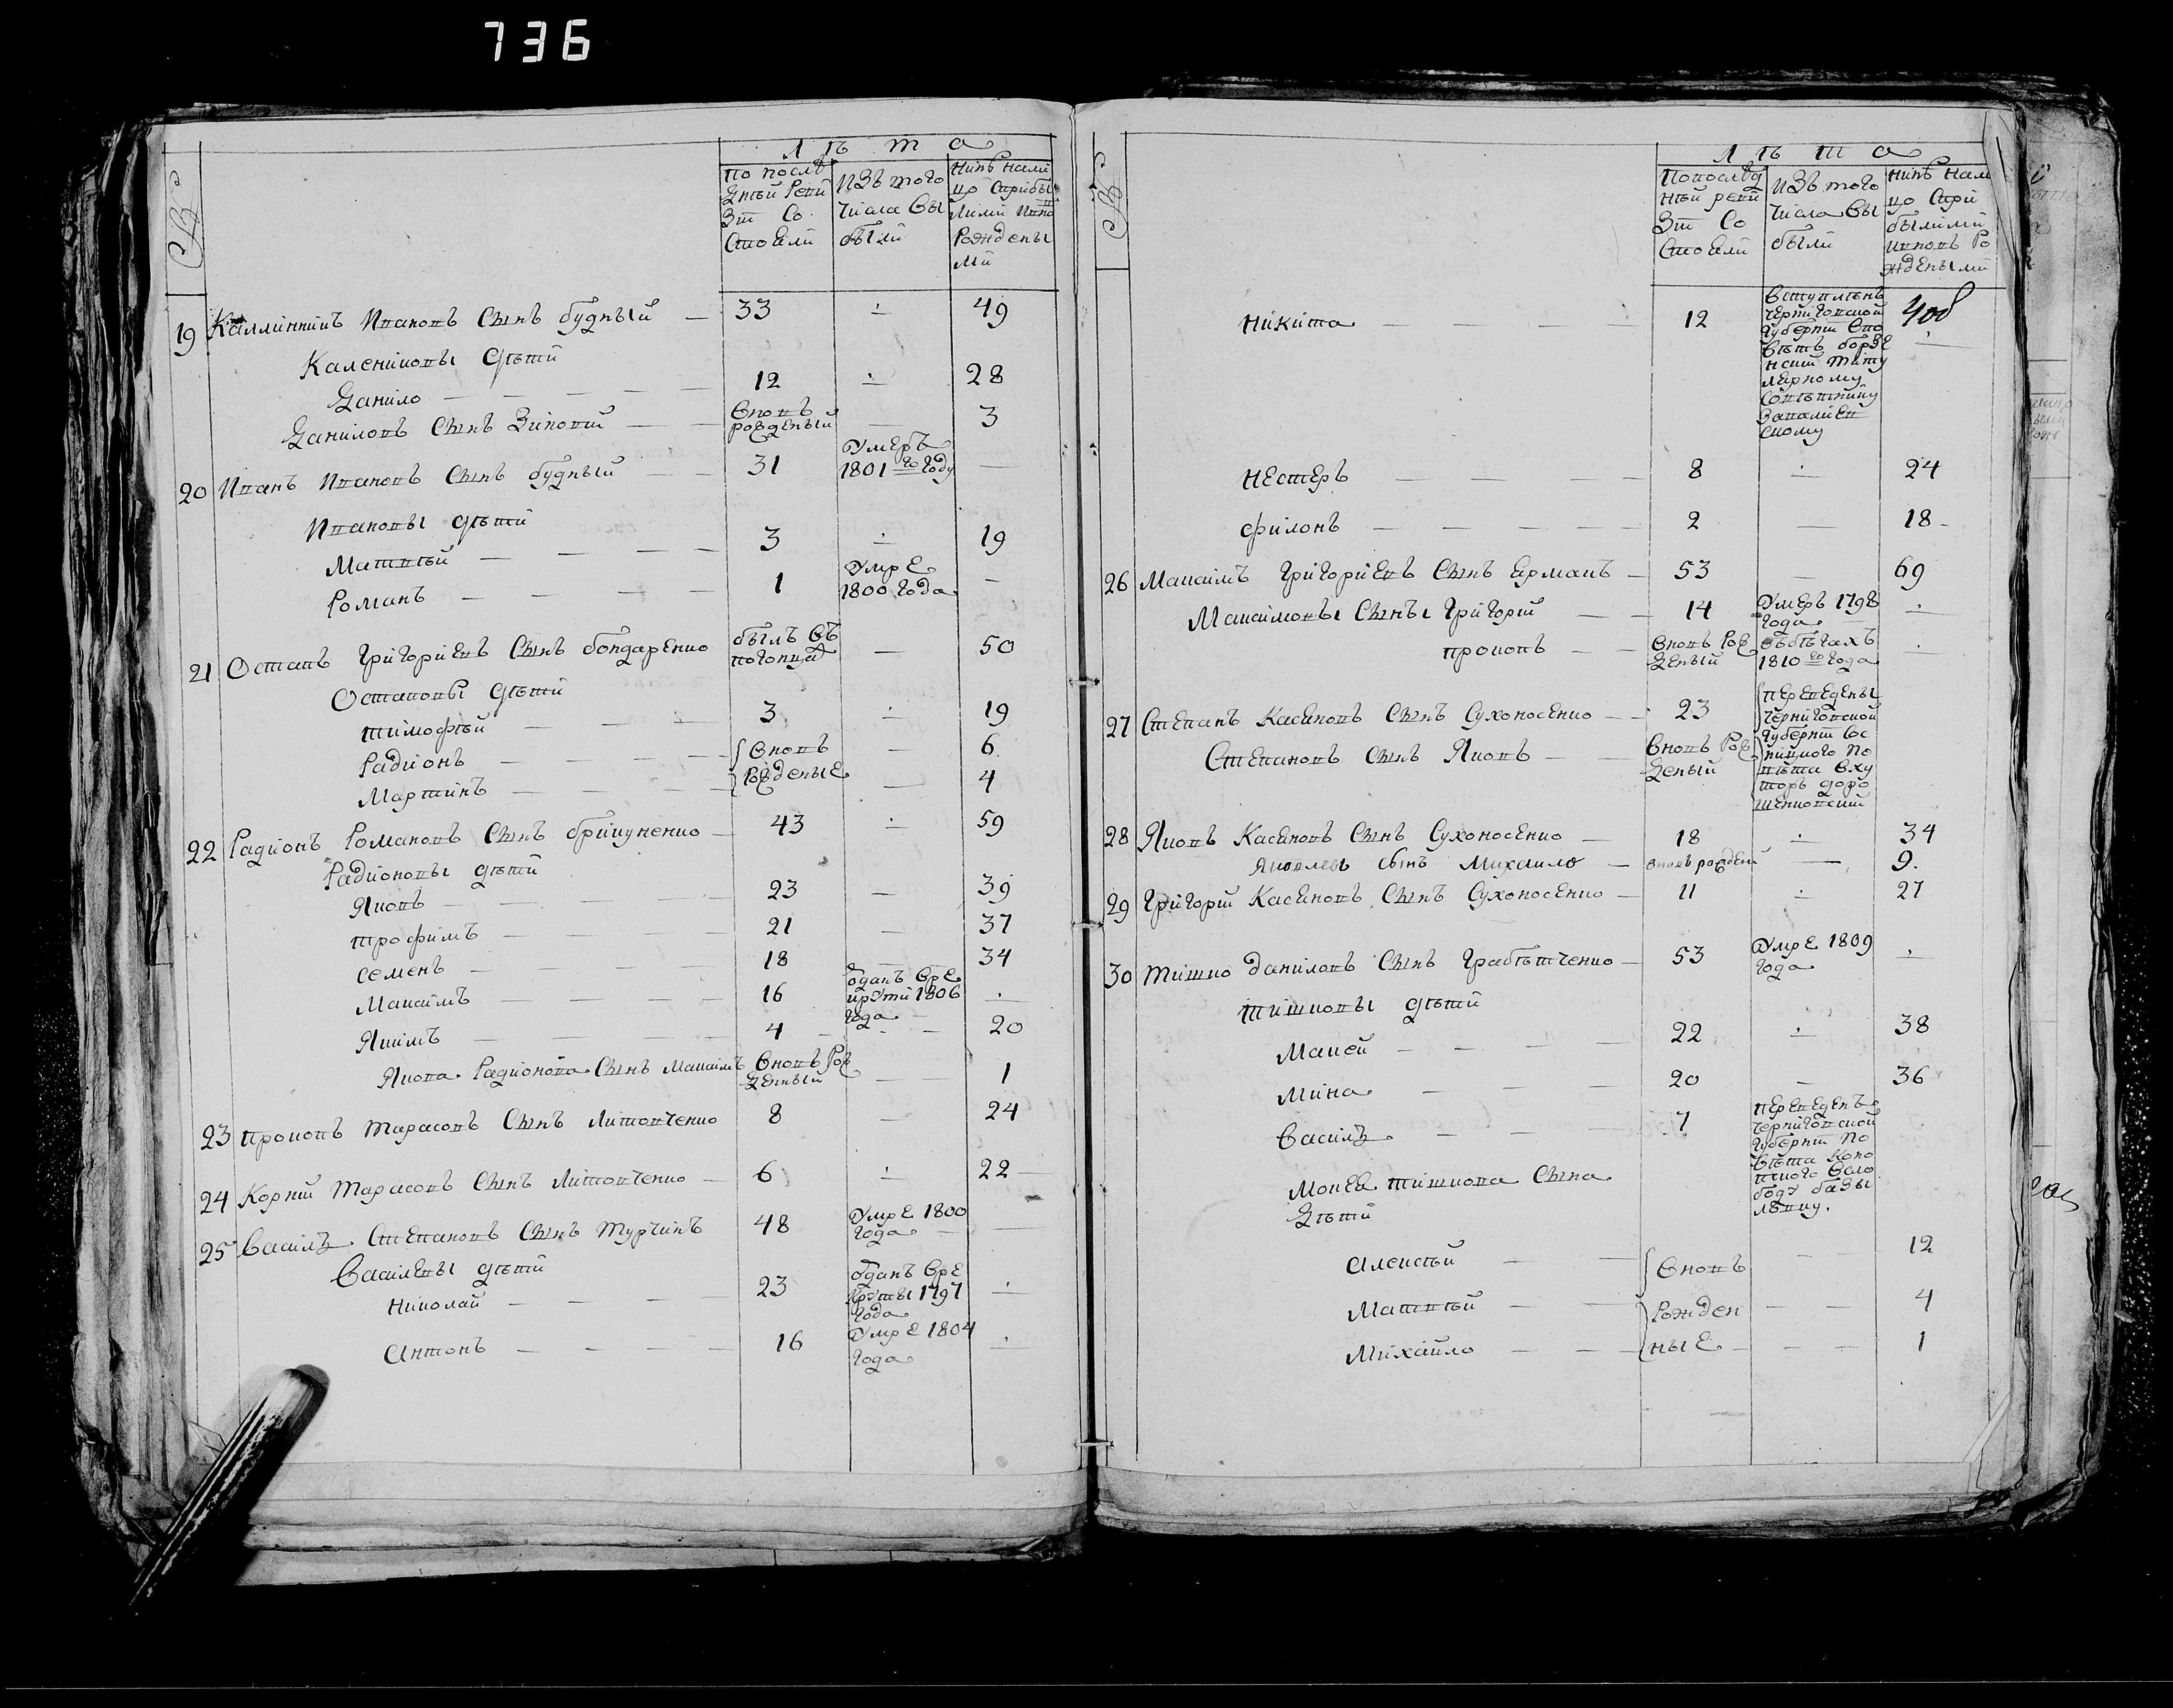 736
Лѣта
По последней ревизіи состояли
Изъ того числа выбыли
Нинѣ налицо с прибылими и вновь рождеными
19 Каллинникъ Ивановъ сынъ будный — 33 — 49
Калениковы дѣти
Данило — 12 — 28
Даниловъ сынъ Зиновій — вновь рожденый — 3
20 Иванъ Ивановъ сынъ будный — 31 умеръ 1801 го году —
Ивановы дѣти
Матвѣй — 3 — 19
Романъ — 1 умре 1800 года —
21 Остапъ Григориевъ сынъ бондаренко былъ въ — 50
Остаповы дѣти
тимофѣй — 3 — 19
Радионъ — вновь — 6
Мартинъ — рожденые — 4
22 Радионъ Романовъ сынъ — 43 — 59
Радионовы дѣти
Яковъ — 23 — 39
трофимъ — 21 — 37
семенъ — 18 — 34
Максимъ — 16 одан в рекрути 1806 года —
Якимъ — 4 — 20
Якова Радионова сынъ Максимъ вновь рожденный — 1
23 прокопъ тарасовъ сынъ литовченко 8 — 24
24 Корній тарасовъ сынъ литовченко — 6 — 22
25 василь Степановъ сынъ турчинъ 48 умре 1800 года —
василевы дѣти
николай — 23 одан в рекруты 1797 года —
антонъ — 16 умре 1804 года —
Лѣта
Попоследней ревизіи состояли
Изъ того числа выбыли
Нинѣ налицо с прибылими и вновь рождеными
никита — 12 черниговской губерніи титулярному совѣтнику
нестеръ — 8 — 24
филонъ — 2 — 18
26 Максимъ Григориевъ сынъ ерманъ — 53 — 69
Максимовы сынъ Григорій — 14 умеръ 1798 года —
прокопъ — вновь рожденый в бѣгахъ 1810 го года —
27 Степанъ Касяновъ сынъ Сухоносенко — 23 переведены черниговской губерніи
Степановъ сынъ Яковъ — вновь рожденый
28 Яковъ Касяновъ сынъ Сухоносенко — 18 — 34
Яковлевъ сынъ Михаило — вновь рожден — 9
29 Григорій Касяновъ сынъ Сухоносенко — 11 — 27
30 тишко даниловъ сынъ Грабѣтченко — 53 умре 1809 года —
тишковы дѣти
Мокей — 22 — 38
мина — 20 — 36
василь — 7 переведенъ черниговской губерніи
Мокея тишкова сина
дѣти
алексѣй — вновь — 12
Матвѣй — рожден — 4
Михайло — ные — 1